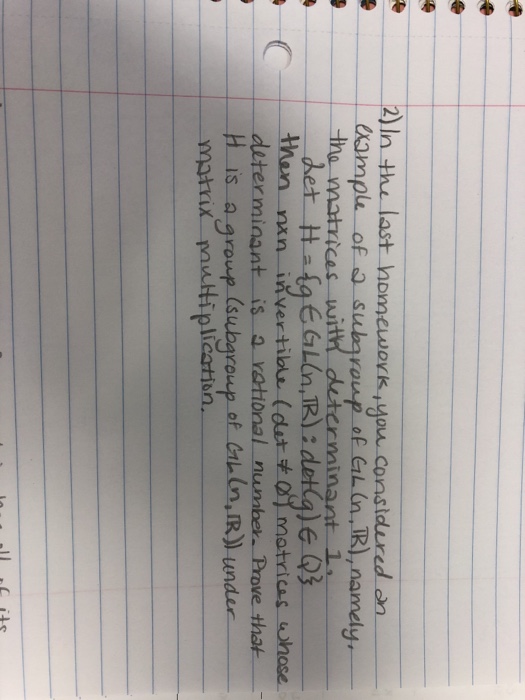 2) In the last homework, you considered an
example of a subgroup of GL(n, ℝ), namely,
the matrices with determinant 1.
Let H = {g ∈ GL(n, ℝ) : det(g) ∈ ℚ}
then nxn invertible (det ≠ 0) matrices whose
determinant is a rational number. Prove that
H is a group (subgroup of GL(n, ℝ)) under
matrix multiplication.